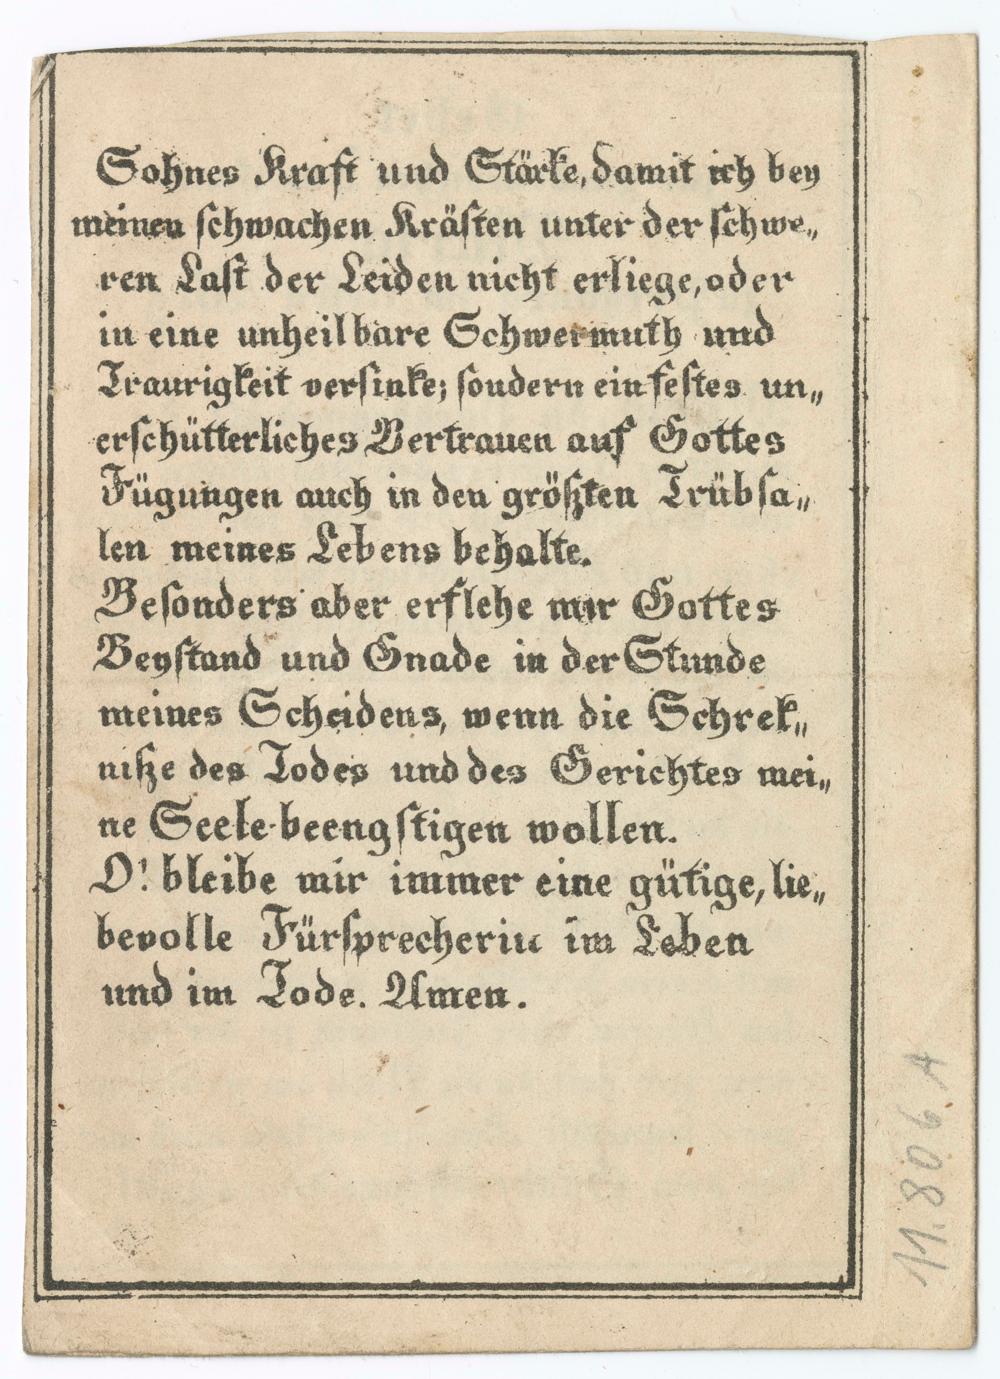 Sohnes Kraft und Stärke, damit ich bey
meinen schwachen Kräften unter der schwe„
ren Last der Leiden nicht erliege, oder
in eine unheilbare Schwermuth und
Traurigkeit versinke; sondern ein festes un„
erschütterliches Vertrauen auf Gottes
Fügungen auch in den größten Trübsa„
len meines Lebens behalte.
Besonders aber erflehe mir Gottes
Beystand und Gnade in der Stunde
meines Scheidens, wenn die Schrek„
niße des Todes und des Gerichtes mei„
ne Seele beengstigen wollen.
O! bleibe mir immer eine gütige, lie„
bevolle Fürsprecherin im Leben
und im Tode. Amen.
11.806 A